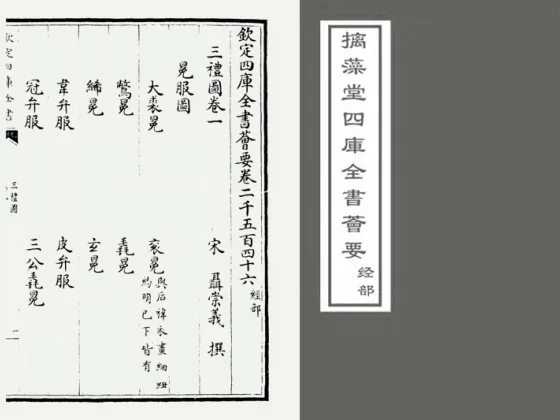 欽定四庫全書薈要卷二千五百四十六 經部
三禮圖卷一
宋 聶崇義 撰
冕服圖
大裘冕
袞冕 與后褘衣畫細紐
約明已下皆有
鷩冕
毳冕
絺冕
玄冕
韋弁服
皮弁服
冠弁服
三公毳冕
欽定四庫全書
三禮圖
一
摛藻堂四庫全書薈要
经部